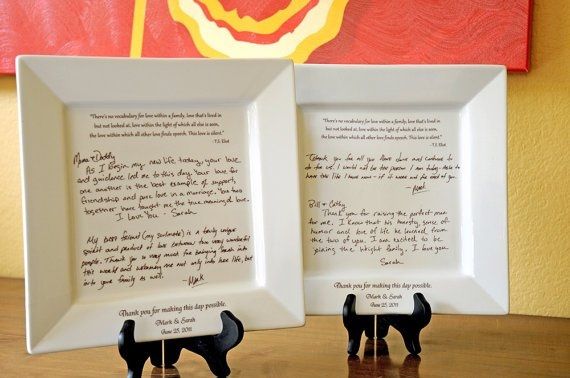 "There's no vocabulary for love within a family, love that's lived in
but not looked at, love within the light of which all else is seen,
the love within which all other love finds speech. This love is silent."
-T.S. Eliot
Mama & Daddy
As I begin my new life today, your love
and guidance led me to this day. Your love for
one another is the best example of support,
friendship and pure love in marriage. You two
together have taught me the true meaning of love.
I Love You - Sarah
My best friend (my soulmate) is a truly unique
spirit and product of love between two very wonderful
people. Thank you so very much for bringing Sarah into
this world and welcoming me not only into her life, but
into your family as well.
-Mark
Thank you for making this day possible.
Mark & Sarah
June 25, 2011
"There's no vocabulary for love within a family, love that's lived in
but not looked at, love within the light of which all else is seen,
the love within which all other love finds speech. This love is silent."
-T.S. Eliot
Thank you for all you have done and continue to
do for me. I would not be the person I am today
have this life I have now - if it were not for of you.
-Mark
Bill & Cathy
Thank you for raising the perfect man
for me. I know that his honesty, sense of
humor and love of life he learned from
the two of you. I am excited to be
joining the Wright family. I love you
Sarah
Thank you for making this day possible.
Mark & Sarah
June 25, 2011